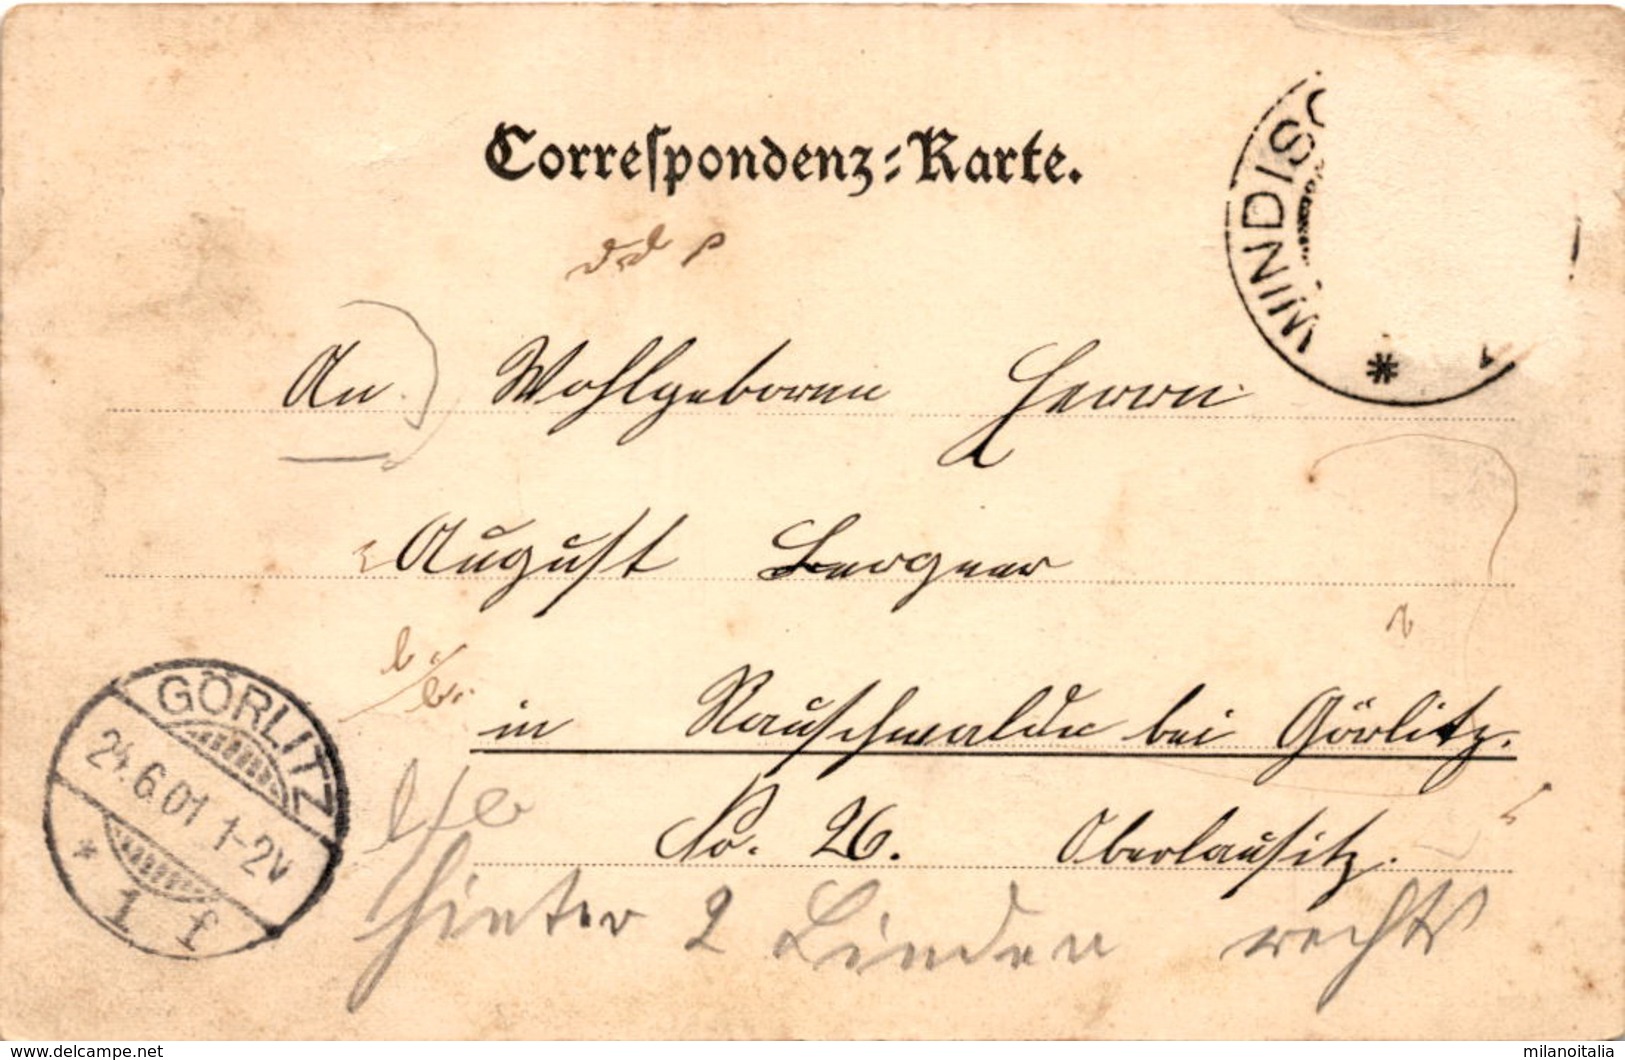 Correspondenz-Karte.
WINDISC
An Wohlgeboren Herrn
August Bergner
in Rauschwalde bei Görlitz.
No. 26. Oberlausitz.
hinter 2 Linden rechts
GÖRLITZ
24.6.01 1-2V
* 1 f
www.delcampe.net
milanoitalia